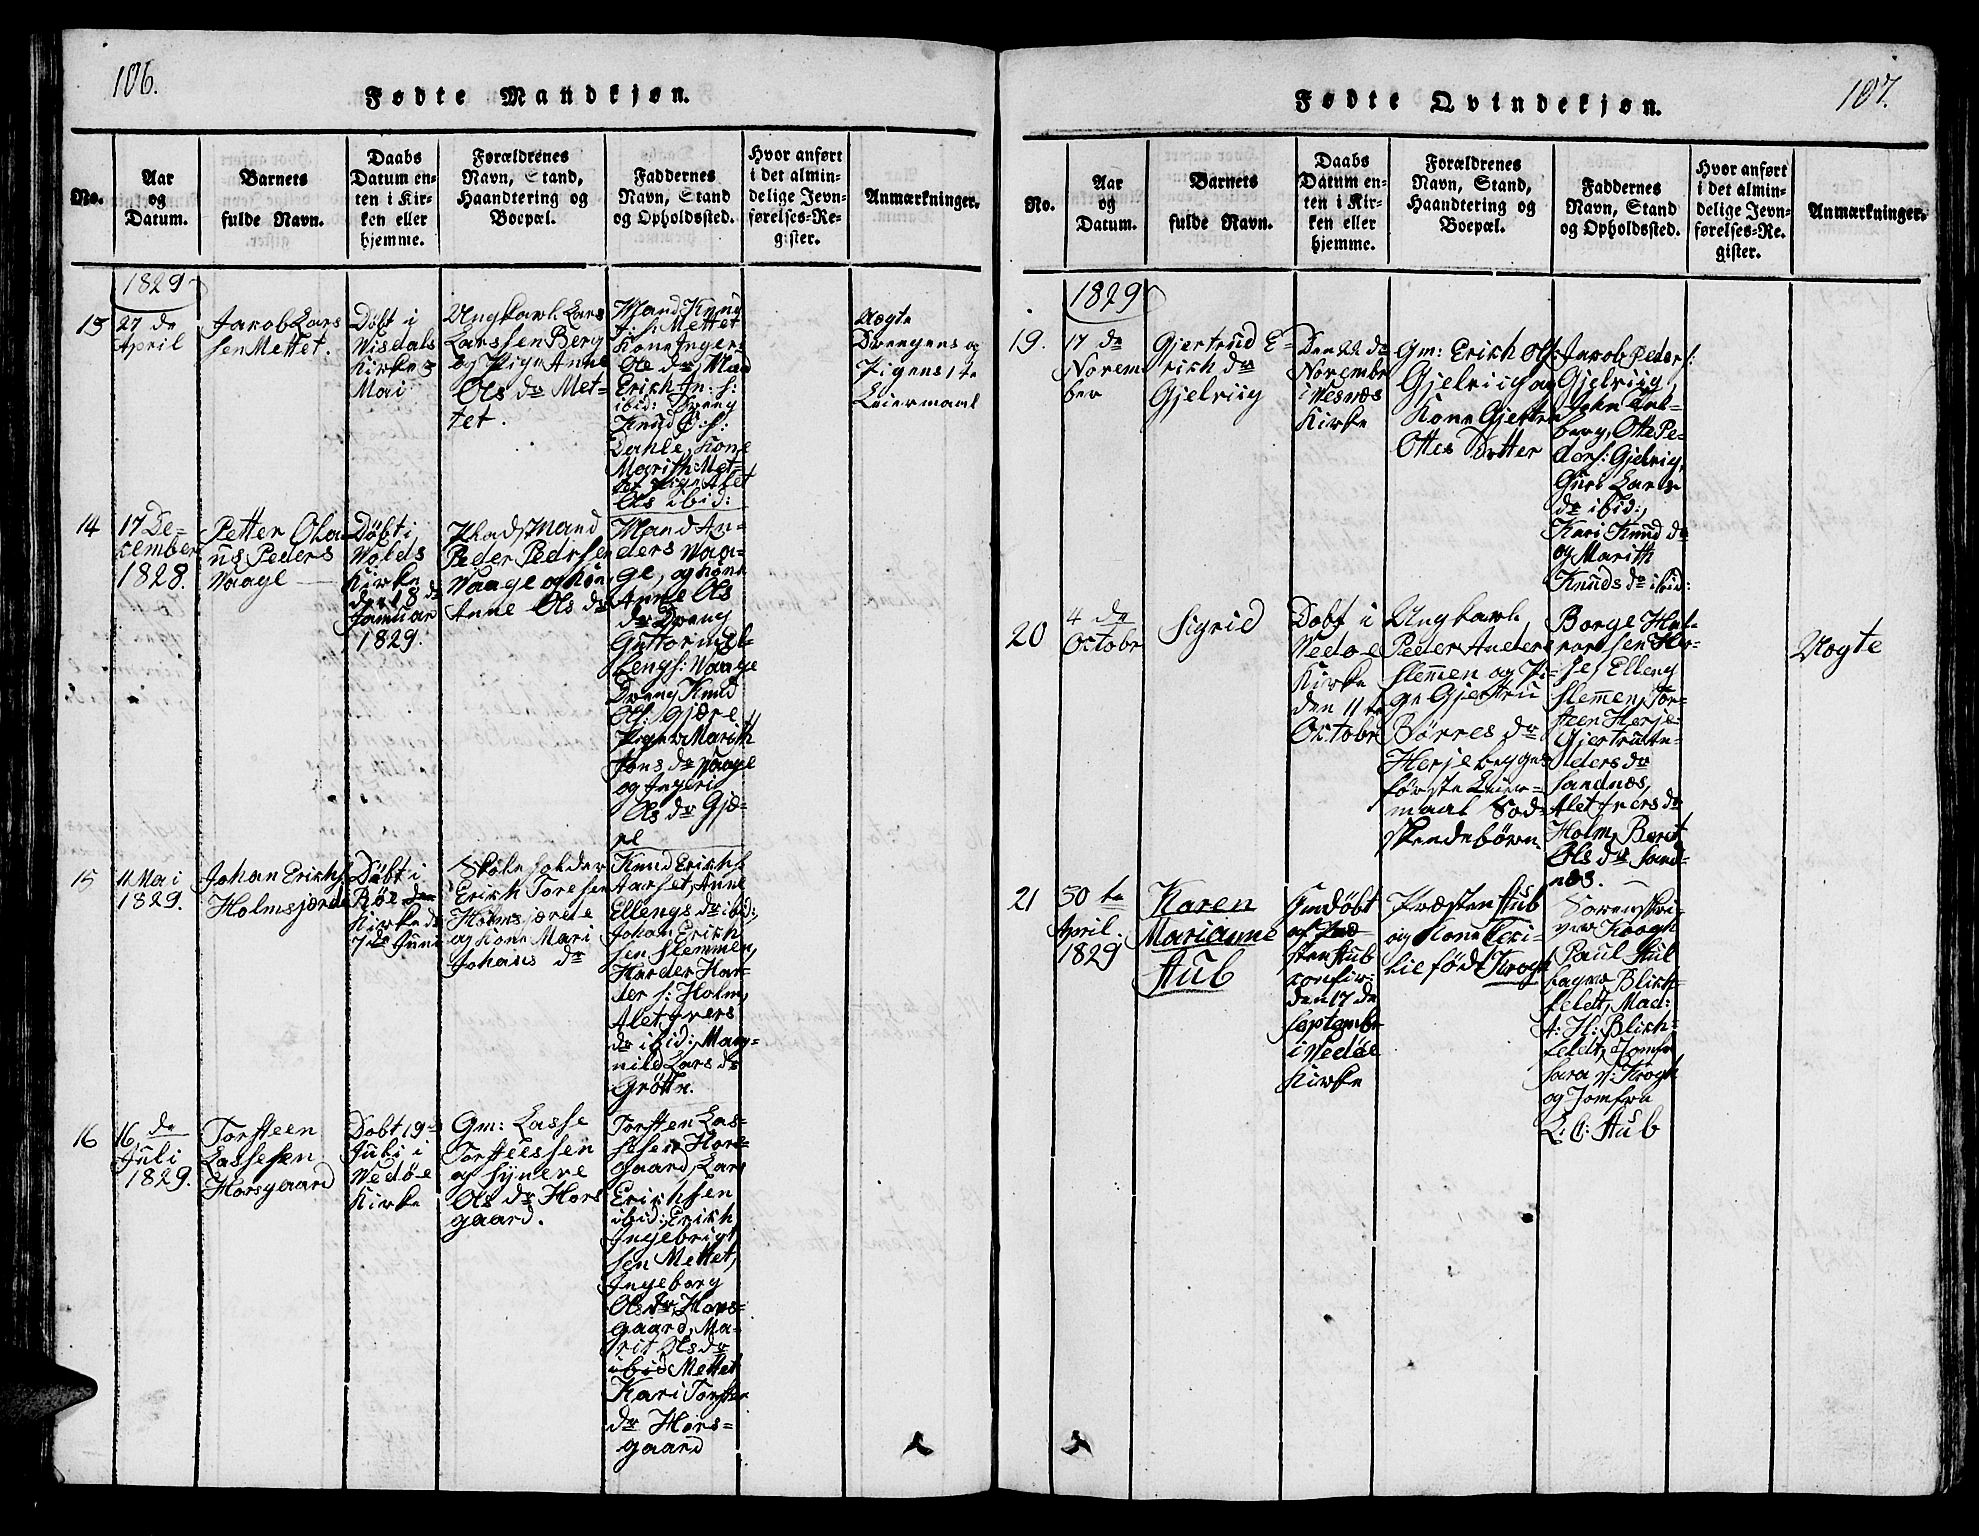 106.
Fødte Mandkjøn.
No.
Aar
og
Datum.
Barnets
fulde Navn.
Daabs
Datum en-
ten i Kir-
ken eller
hjemme.
Forældrenes
Navn, Stand,
Haandtering og
Boepæl.
Faddernes
Navn, Stand
og Opholdssted.
Hvor anført
i det almin-
delige Jevn-
førelses-Re-
gister.
Anmærkninger.
1829
13
27 de
April
Jacob Lars
sen Mettet.
Døbt i
Visdals
Kirke 3
Mai
Ungkarl Lars
Larssen Berg
og Pige Anne
Ols dr Met-
tet.
Mand Knud
Mettet
Kone Ingeri
Ole dr, Mand
Erich
ibid: Dreng
Knud O: s:
Dahle, Kone
Marith Met-
tet Pige Alet
Ols ibid:
Uægte
Drengens og
Pigens 1te
Leiermaal
14
17 De-
cember
1828.
Petter Ola
us Peders
Vaage
Døbt i
Volds
Kirke
den 18 de
Januar
1829.
Mand
Peder Pedersen
Vaage og Kone
Anne Ols dr
Mand An-
ders Vaa-
ge, og Kone
Anne Ols
dr Dreng
Guttorm El-
lengs: Vaage
Dreng Knud
Ol: Gjære
Pigen Marith
Jons dr Vaage
og Ingeri
Ols dr Gjæ-
re
15
11 Mai
1829.
Johan Erichs
Holmsjerde
Døbt i
Røe
Kirke de
7 de Juni
Skoleholder
Erich Toresen
Holmsjerde
og Kone Mari
Johans dr
Knud Erichs
Aarset, Anne
Ellengs dr ibid:
Johan Erich
sen Slemmen,
Harder Har-
der s: Holm,
Alet Ivers
dr ibid: Mag-
nild Lars dr
Grötte.
16
16 de
Juli
1829.
Torsteen
Lassesen
Horsgaard
Dobt 19
Juli i
Vedøe
Kirke
Gm: Lasse
Torsteessen
og Synneve
Ols dr Hors
gaard.
Torsten Las-
sesen Hors-
gaard, Lars
Erichsen
ibid: Erich
Ingebrigt
sen Mettet,
Ingeborg
Ols dr Hors-
gaard, Ma-
rit Ols dr
ibid Mettet
Kari Torsten
dr Hors-
gaard
107.
Fødte Qvindekjøn.
No.
Aar
og
Datum.
Barnets
fulde Navn.
Daabs
Datum en-
ten i Kir-
ken eller
hjemme.
Forældrenes
Navn, Stand,
Haandtering og
Boepæl.
Faddernes
Navn, Stand
og Opholdssted.
Hvor anført
i det almin-
delige Jevn-
førelses-Re-
gister.
Anmærkninger.
1829
19.
17 de
Novem
ber
Gjertrud E-
rich dr
Gjelviig
Den 22 de
Novembr
i Vesnæs
Kirke
Gm: Erich Ols
Gjelviig og
Kone Gjertru
Ottes Datter
Jacob Peder s:
Gjelviig,
John
berg, Otte Pe-
ders: Gjelvig,
Guri Lars
dr ibid:,
Kari Knud dr
og Marith
Knuds dr ibid:
20
4 de
Octobr
Sigrid
Dobt i
Vedøe
Kirke
den 11 te
Octobr
Ungkarl
Peder Anders
Slemmen og Pi-
ge Gjertru
Børres dr
Herje begges
første Leier-
maal
Borge Hal-
vorsen Her-
je, Elleng
Slemmen, Tor-
steen Herje
Gjertru An-
ders dr
Sandnæs,
Alet Ivers dr
Holm, Berit
Ols dr Sand-
næs.
Uægte
21
30 te
April.
1829
Karen
Marianne
Stub
Hmdøbt
af Præ-
sten Stub
confir:
den 17 de
Septembr
i Vedøe
Kirke
Præsten Stub
og Kone Ceci-
lie født Krogh
Sorenskri-
ver Krogh
Paul Stub
Blich-
feldt, Mad:
A: H: Blich-
feldt, Jomfr
Sara v: Krogh
og Jomfru
L: C: Stub